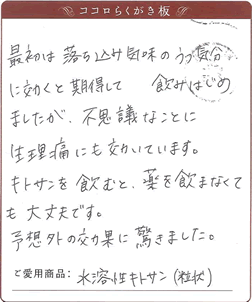 ココロらくがき板
最初は落ち込み気味のうつ気分
に効くと期待して 飲みはじめ
ましたが、不思議なことに
生理痛にも効いています。
キトサンを飲むと、薬を飲まなくて
も大丈夫です。
予想外の効果に驚きました。
ご愛用商品: 水溶性キトサン(粒状)